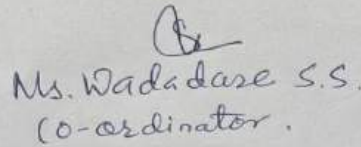 Ms. Wadadare S.S.
Co-ordinator.